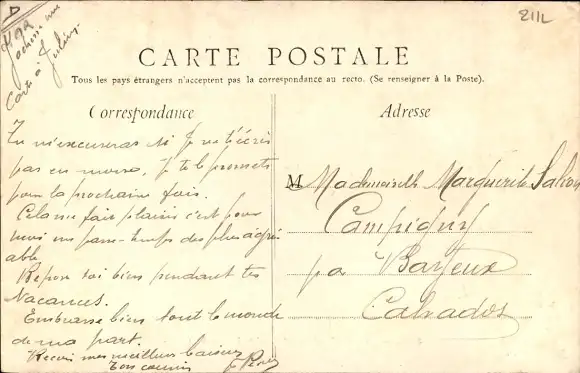 D
une
Carte à
211L
CARTE POSTALE
Tous les pays étrangers n'acceptent pas la correspondance au recto. (Se renseigner à la Poste).
Correspondance
Tu m'excuseras si je ne t'écris
pas en je te le promets
pour la prochaine fois.
Cela me fait plaisir c'est pour
moi un passe-temps des plus agré
able
Repose toi bien pendant tes
Vacances.
Embrasse bien tout le monde
de ma part.
Recois mes meilleurs baisers
Ton cousin
Adresse
M Mademoiselle Marguerite
Campigny
par Bayeux
Calvados